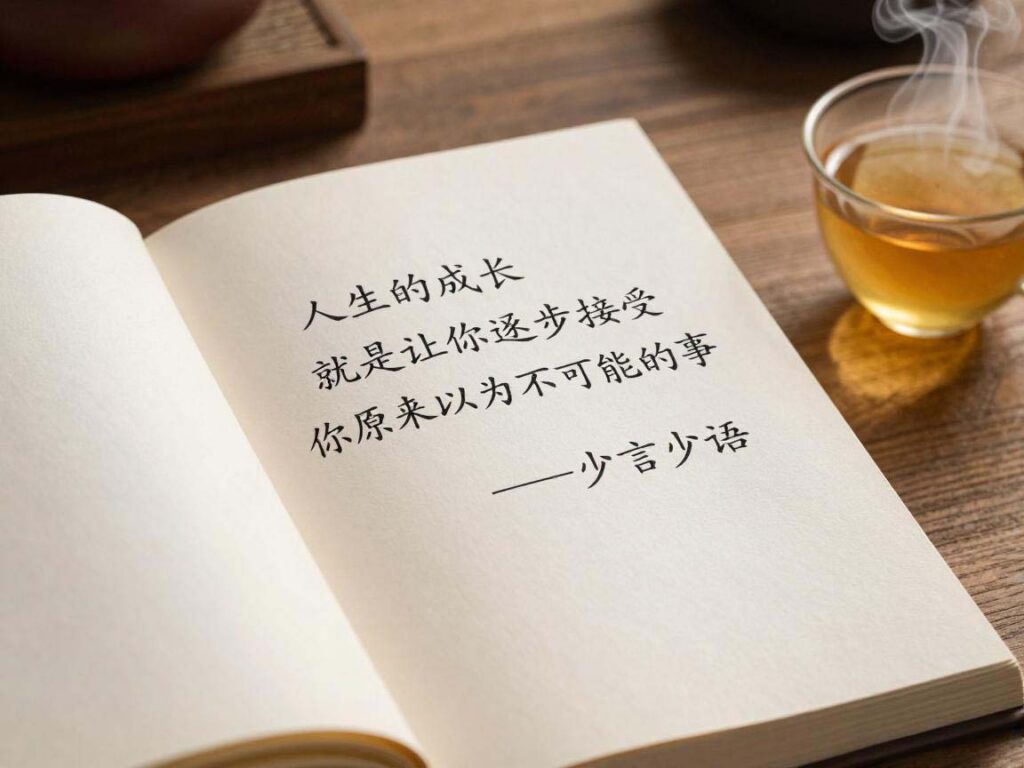 人生的成长
就是让你逐步接受
你原来以为不可能的事
——少言少语